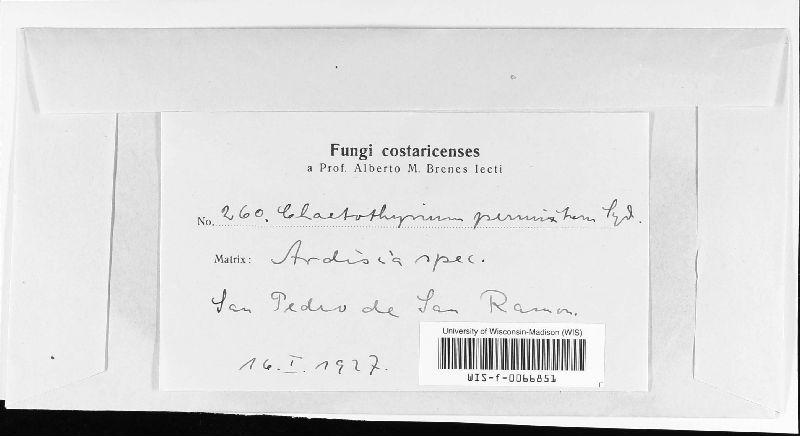 Fungi costaricenses
a Prof. Alberto M. Brenes lecti
No. 260. Chaetothyrium permixtum Syd.
Matrix: Ardisia spec.
San Pedro de San Ramon.
16. I. 1927.
University of Wisconsin-Madison (WIS)
WIS-f-0066851